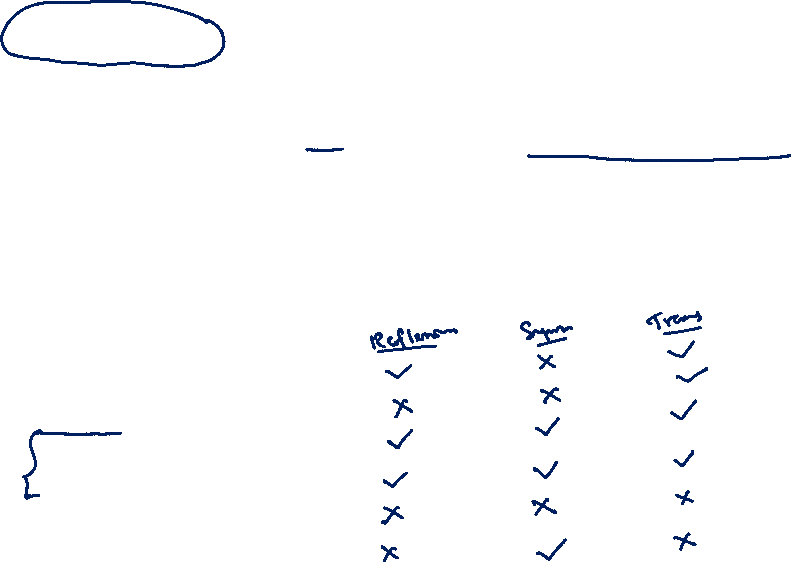 Reflexive Symm Trans
✓ × ✓
× × ✓
✓ ✓ ✓
✓ ✓ ✓
× × ×
× ✓ ×